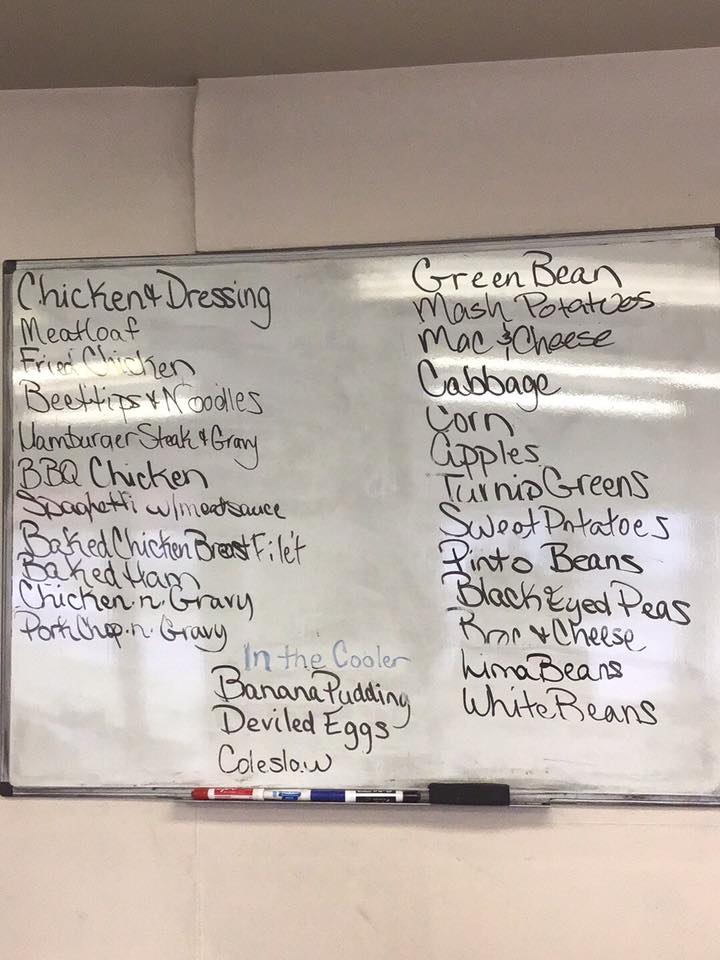 Chicken & Dressing
Meatloaf
Fried Chicken
Beeftips & Noodles
Hamburger Steak & Gravy
BBQ Chicken
Spaghetti w/meatsauce
Baked Chicken Breast Filet
Baked Ham
Chicken.n.Gravy
PorkChop.n.Gravy
Green Bean
Mash Potatoes
Mac & Cheese
Cabbage
Corn
Apples
Turnip Greens
Sweet Potatoes
Pinto Beans
Black Eyed Peas
& Cheese
Lima Beans
White Beans
In the Cooler
Banana Pudding
Deviled Eggs
Coleslaw